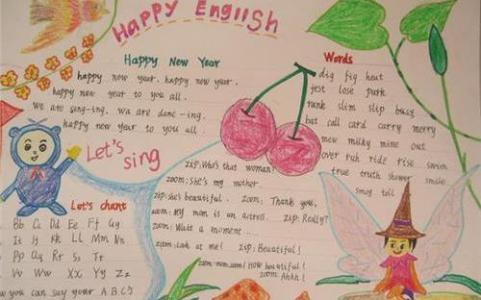 Happy English
Happy New Year
happy new year. happy new year.
happy new year to you all.
we are sing-ing. we are danc-ing.
happy new year to you all
Let's
sing
Words
dig fig heat
jest lose park
tank slim slip busy
bat call card carry merry
mew milky mine out
over rub ride rise swim
true truth shower smile
smog tell
zip: Who's that woman?
zoom: She's my mother.
zip: she's beautiful. zoom: Thank you,
zoom: My mom is an actress. zip: Really?
zoom: Wait a moment ....
zoom: Look at me! zip: Beautiful!
zoom: mom, mom! How beautiful!
zoom: Ahhh!
Let's chant
Bb Cc Dd Ee Ff Gg
Ii Jj Kk Ll Mm Nn
Pp Qq Rr Ss Tt
Vv Ww Xx Yy Zz
you can say your A B C's